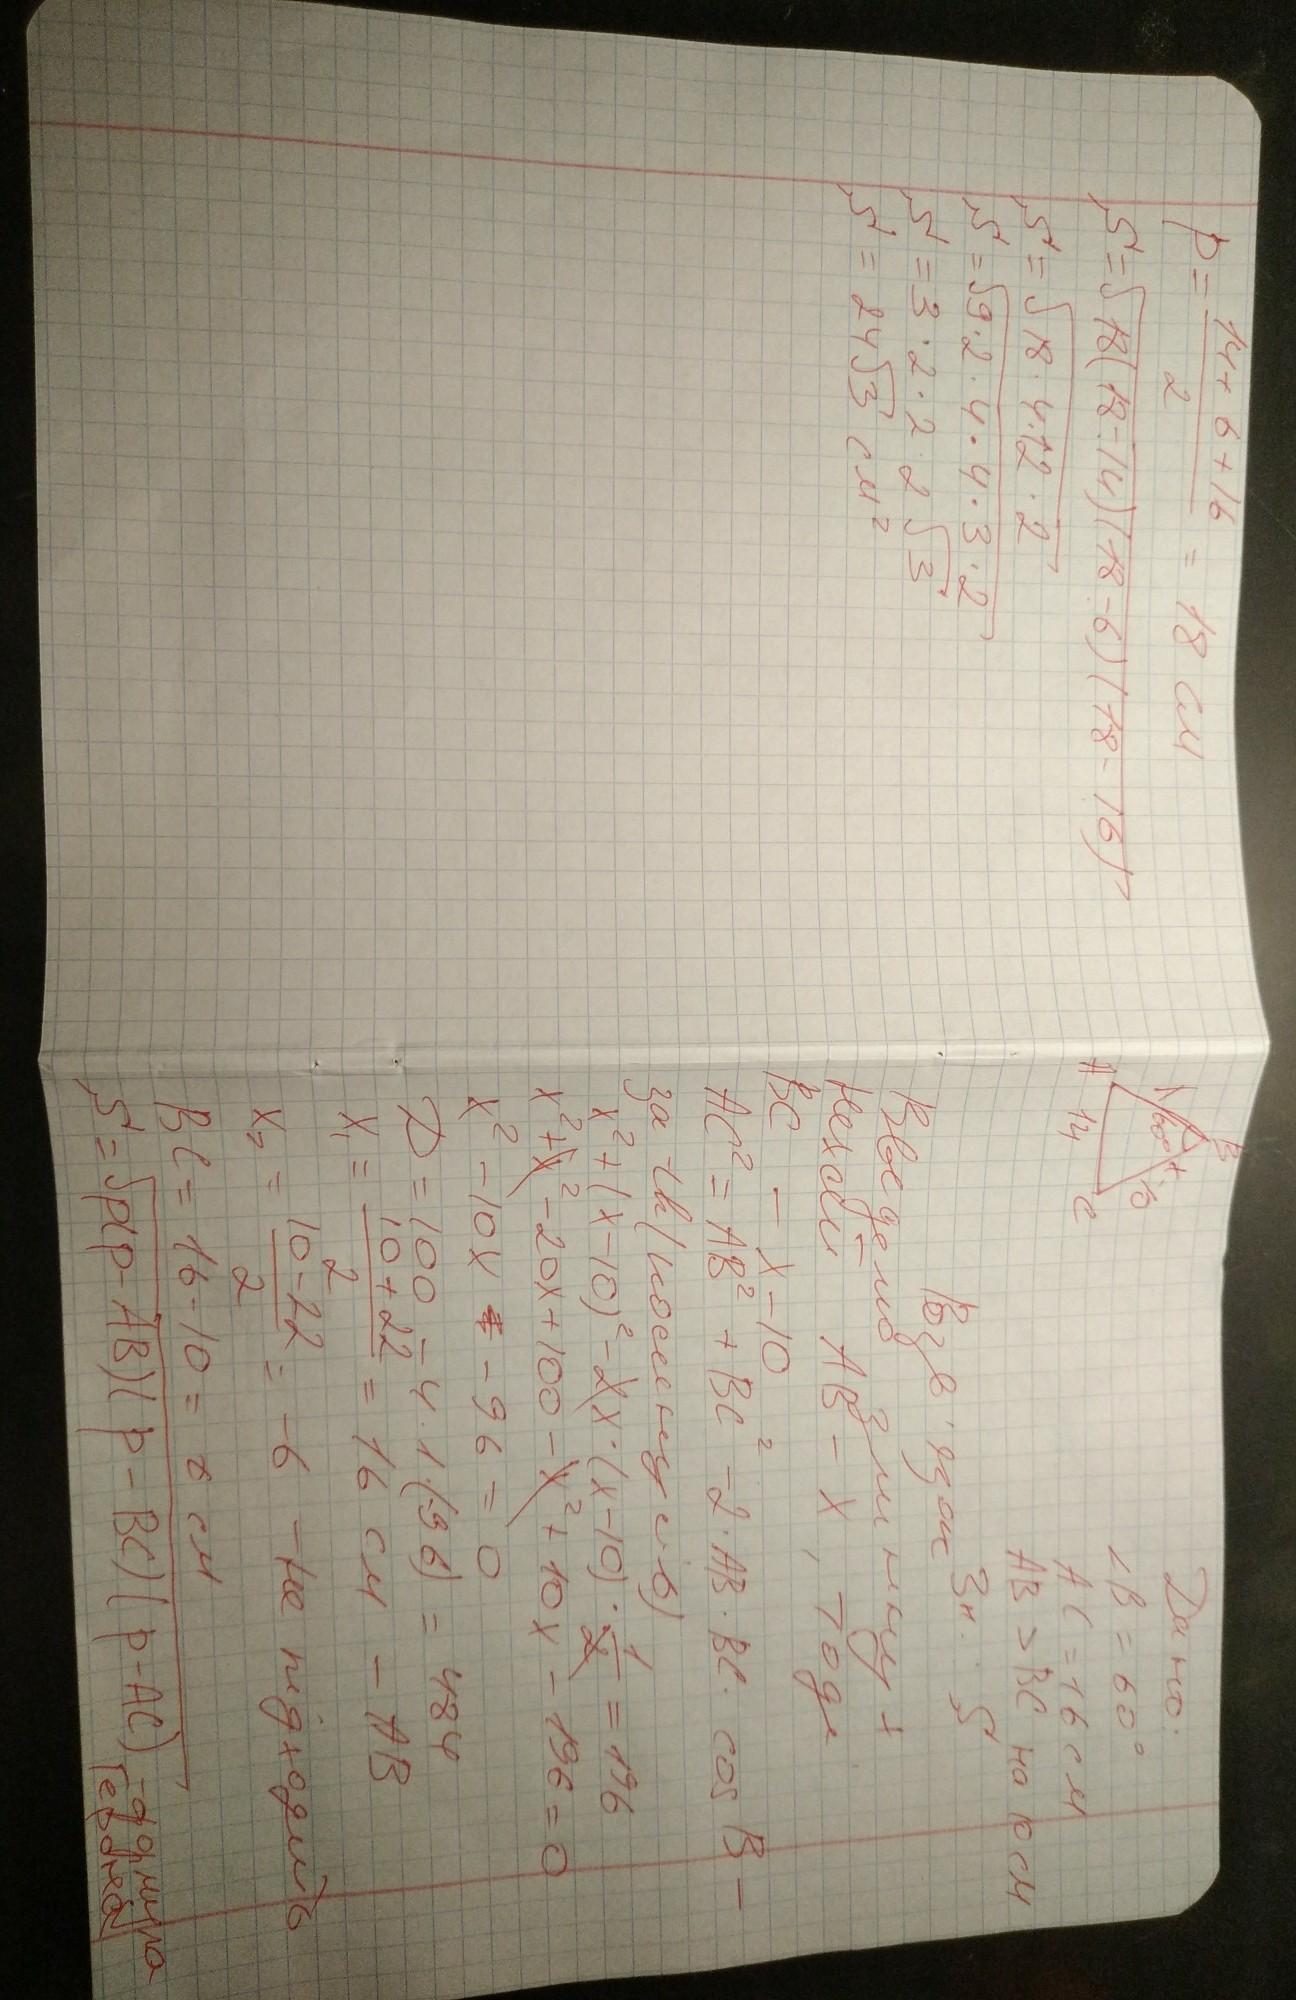 Дано:
∠B = 60°
AC = 16 см
AB > BC на 10 см
Зн.: S
B
60°
x
x-10
A 14 C
Розв'язок
Введемо змінну x
Нехай AB - x, тоді
BC - x-10
AC² = AB² + BC² - 2·AB·BC·cos B -
за th (косинусів)
x² + (x-10)² - 2x·(x-10)·1/2 = 196
x² + x² - 20x + 100 - x² + 10x - 196 = 0
x² - 10x - 96 = 0
D = 100 - 4·1·(-96) = 484
x₁ = (10+22)/2 = 16 см - AB
x₂ = (10-22)/2 = -6 - не підходить
BC = 16-10 = 6 см
S = √p(p-AB)(p-BC)(p-AC) - формула
Герона
p = (14+6+16)/2 = 18 см
S = √18(18-14)(18-6)(18-16)
S = √18·4·12·2
S = √9·2·4·4·3·2
S = 3·2·2·2√3
S = 24√3 см²